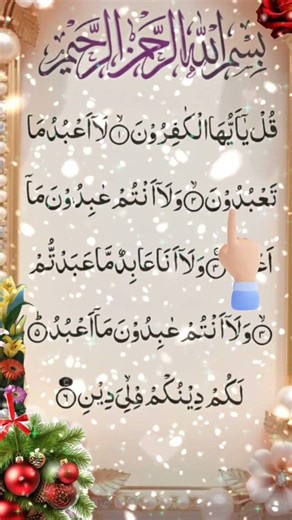 بِسْمِ اللّٰهِ الرَّحْمٰنِ الرَّحِيْمِ
قُلْ يٰۤاَيُّهَا الْكٰفِرُوْنَ ۙ۝۱ لَاۤ اَعْبُدُ مَا
تَعْبُدُوْنَ ۙ۝۲ وَلَاۤ اَنْتُمْ عٰبِدُوْنَ مَاۤ
وَلَاۤ اَنَا عَابِدٌ مَّا عَبَدْتُّمْ
ۙ۝۴ وَلَاۤ اَنْتُمْ عٰبِدُوْنَ مَاۤ اَعْبُدُ ؕ۝۵
لَكُمْ دِيْنُكُمْ فَلِيَ دِيْنِ ۝۶